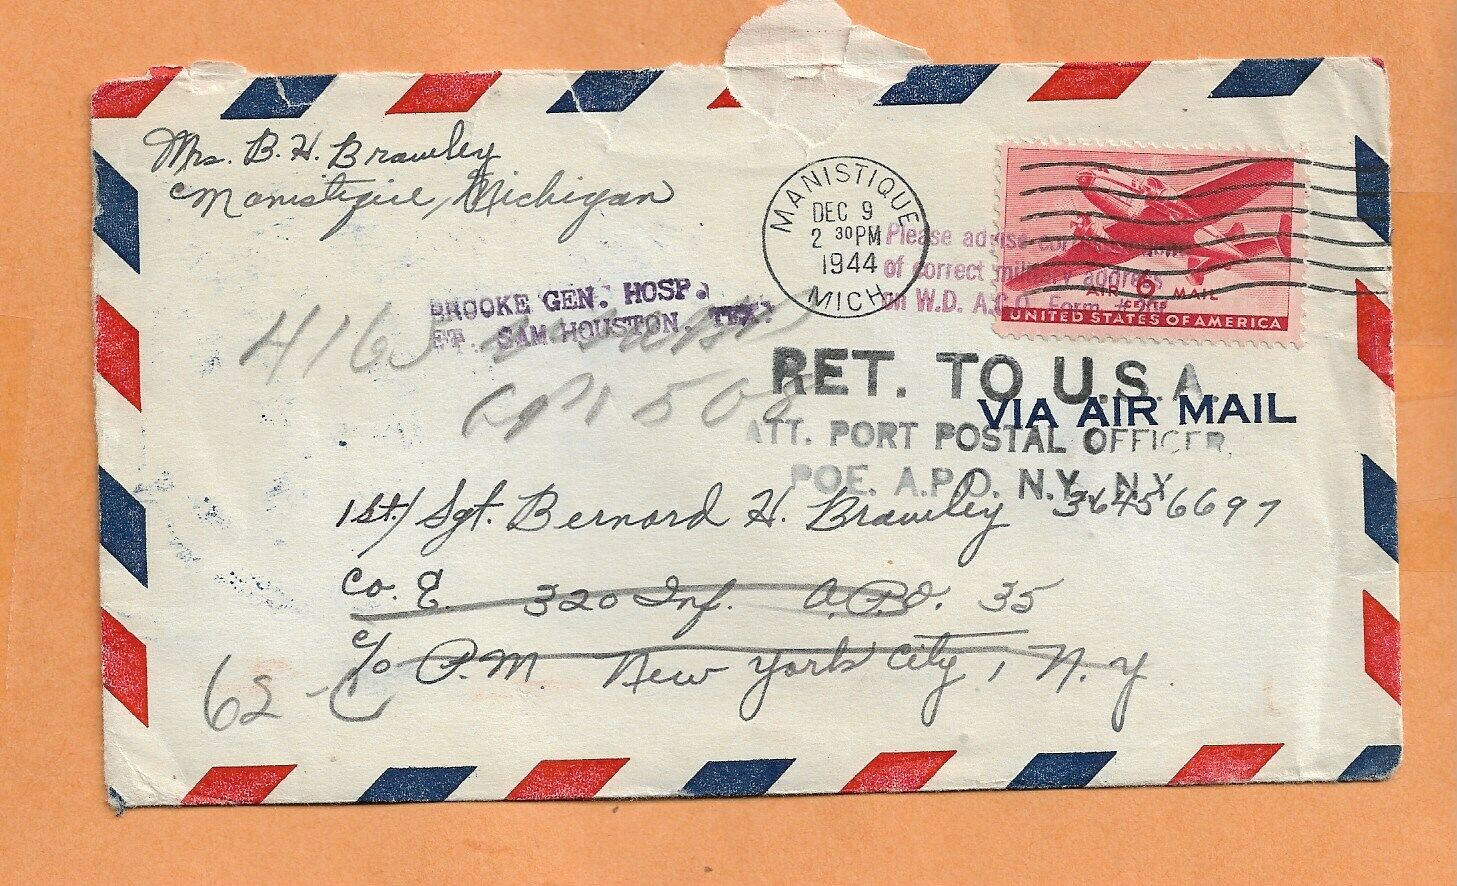 Mrs. B. H. Brawley
Manistique, Michigan
MANISTIQUE
DEC 9
2 30 PM
1944
MICH
Please advise
of correct military address
on W.D. A.G.O. Form
AIR 6 MAIL
CENTS
UNITED STATES OF AMERICA
BROOKE GEN. HOSP.
FT. SAM HOUSTON, TEX.
RET. TO U.S.A.
VIA AIR MAIL
ATT. PORT POSTAL OFFICER,
POE. A.P.O. N.Y. N.Y.
1st/Sgt. Bernard H. Brawley 36456697
Co. E. 320 Inf. A.P.O. 35
c/o P.M. New York City, N.Y.
62-C